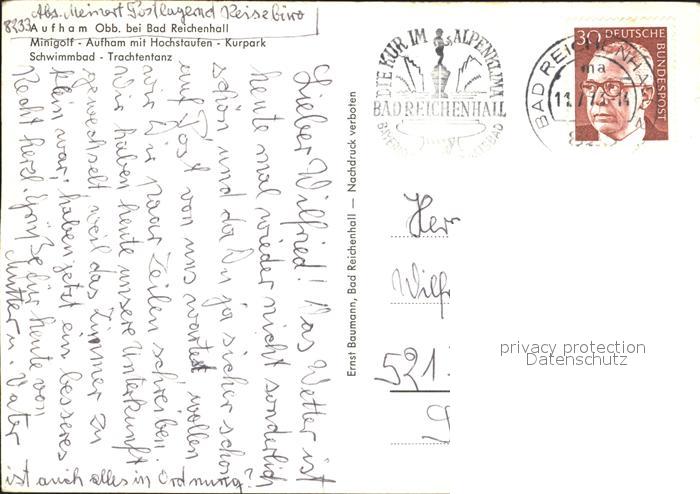 Abs. Meinert Postlagernd Reisebüro
8233 Aufham Obb. bei Bad Reichenhall
Minigolf - Aufham mit Hochstaufen - Kurpark
Schwimmbad - Trachtentanz
Lieber Wilfried! Das Wetter ist
heute mal wieder nicht sonderlich
schön und da Du ja sicher schon
auf Post von uns wartest wollen
wir Dir paar Zeilen schreiben.
Wir haben heute unsere Unterkunft
gewechselt weil das Zimmer zu
klein war, haben jetzt ein besseres
Recht herzl. Grüße für heute von
Mutter u. Vater
ist auch alles in Ordnung?
Ernst Baumann, Bad Reichenhall — Nachdruck verboten
DIE KUR IM ALPENKLIMA
BAD REICHENHALL
BAD REICHENHALL
ma
30 DEUTSCHE
BUNDESPOST
Herr
Wilfr
521
privacy protection
Datenschutz